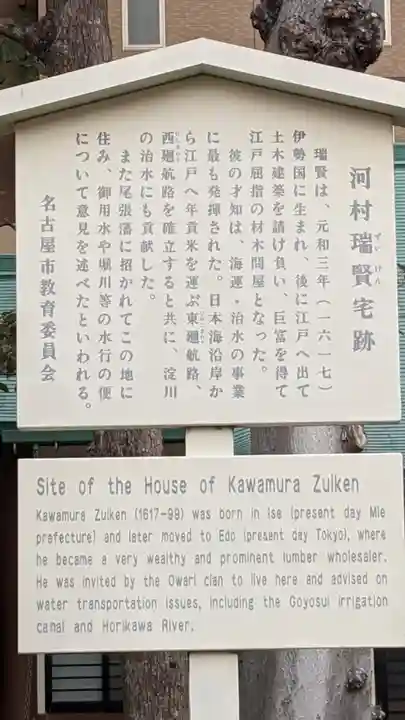 河村瑞賢宅跡
ずいけん
瑞賢は、元和三年（一六一七）
伊勢国に生まれ、後に江戸へ出て
土木建築を請け負い、巨富を得て
江戸屈指の材木問屋となった。
彼の才知は、海運・治水の事業
に最も発揮された。日本海沿岸か
ら江戸へ年貢米を運ぶ東廻航路、
西廻航路を確立すると共に、淀川
の治水にも貢献した。
また尾張藩に招かれてこの地に
住み、御用水や堀川等の水行の便
について意見を述べたといわれる。
名古屋市教育委員会
Site of the House of Kawamura Zuiken
Kawamura Zuiken (1617-99) was born in Ise (present day Mie
prefecture) and later moved to Edo (present day Tokyo), where
he became a very wealthy and prominent lumber wholesaler.
He was invited by the Owari clan to live here and advised on
water transportation issues, including the Goyosui irrigation
canal and Horikawa River.